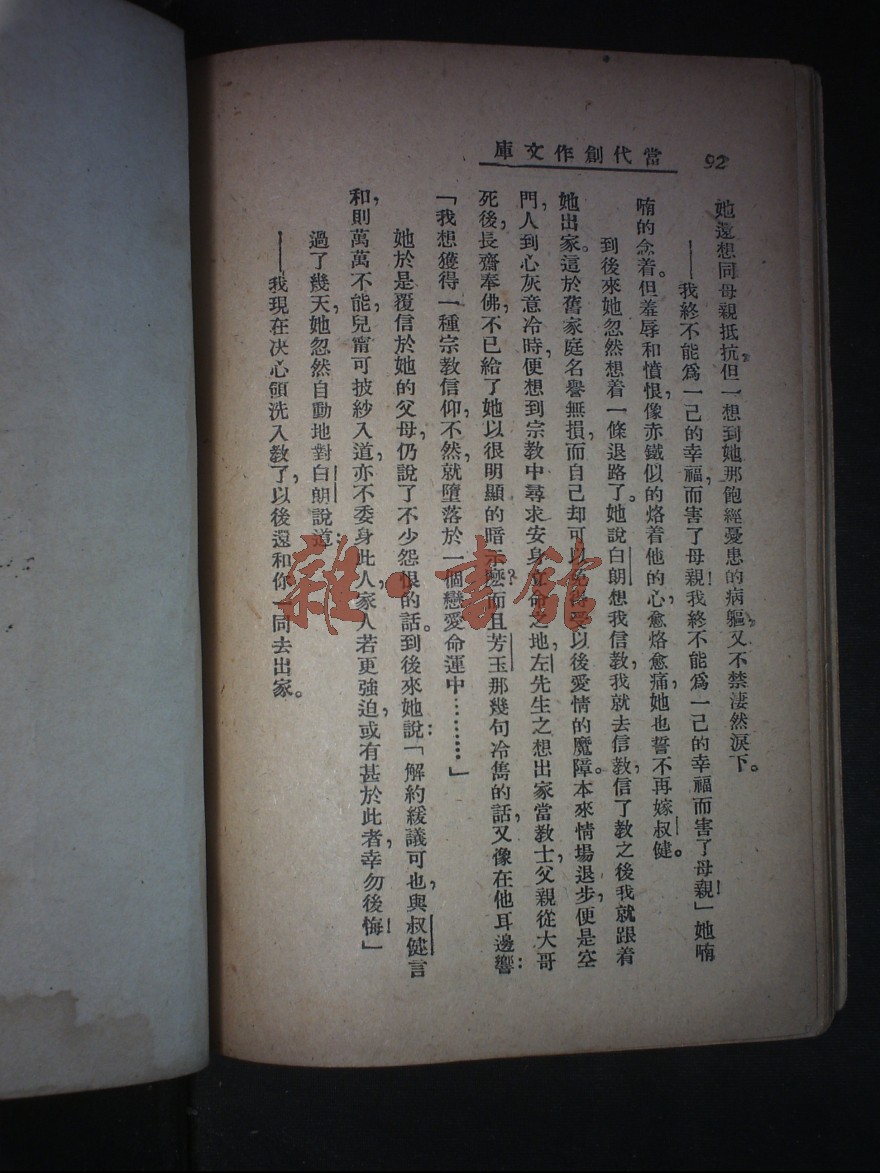 當代創作文庫
92
她還想同母親抵抗，但一想到她那飽經憂患的病軀，又不禁淒然淚下。
——我終不能爲一己的幸福，而害了母親！我終不能爲一己的幸福而害了母親！」她喃
喃的念着。但羞辱和憤恨，像赤鐵似的烙着他的心，愈烙愈痛，她也誓不再嫁叔健。
到後來她忽然想着一條退路了。她說白朗想我信教，我就去信教，信了教之後我就跟着
她出家。這於舊家庭名譽無損，而自己却可以免得受以後愛情的魔障。本來情場退步，便是空
門，人到心灰意冷時，便想到宗教中尋求安身立命之地，左先生之想出家當教士，父親從大哥
死後，長齋奉佛，不已給了她以很明顯的暗示麽？而且芳玉那幾句冷雋的話，又像在他耳邊響：
「我想獲得一種宗教信仰，不然，就墮落於一個戀愛命運中………」
她於是覆信於她的父母，仍說了不少怨恨的話。到後來她說：「解約緩議可也，與叔健言
和，則萬萬不能，兒甯可披紗入道，亦不委身此人，家人若更強迫，或有甚於此者，幸勿後悔！」
過了幾天，她忽然自動地對白朗說道：
——我現在決心領洗入教了，以後還和你一同去出家。
雜·書館